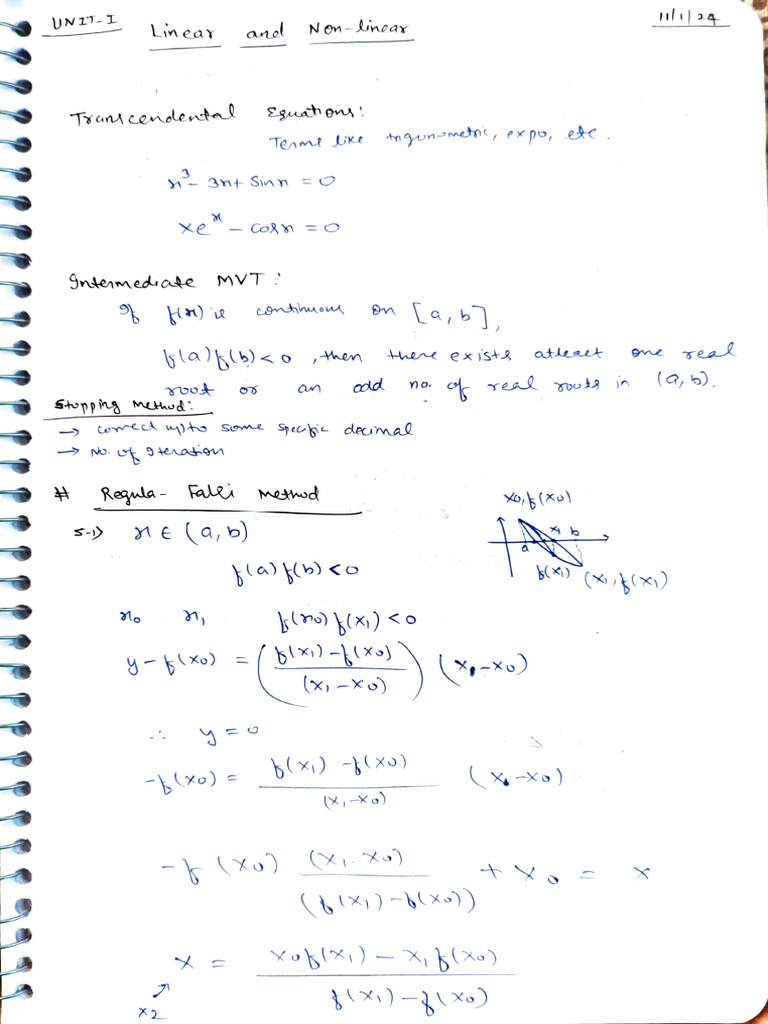 UNIT-I
11/1/24
Linear and Non-linear
Transcendental Equations:
Terms like trigonometric, expo, etc.
x³- 3x+ Sinx = 0
xeˣ - cosx = 0
Intermediate MVT:
If f(x) is continuous on [a, b],
f(a) f(b) < 0 , then there exists atleast one real
root or an odd no. of real roots in (a, b).
Stopping Method:
→ correct upto some specific decimal
→ No. of Iteration
# Regula- Falsi Method
x0, f(x0)
S-1) x ∈ (a, b)
a x1 b
f(x1) (x1, f(x1)
f(a) f(b) < 0
x0 x1 f(x0) f(x1) < 0
y - f(x0) = (f(x1) - f(x0) / (x1 - x0)) (x - x0)
∴ y = 0
-f(x0) = f(x1) - f(x0) / (x1 - x0) (x - x0)
-f (x0) (x1 - x0) / (f(x1) - f(x0)) + x0 = x
x = x0f(x1) - x1f(x0) / f(x1) - f(x0)
x2